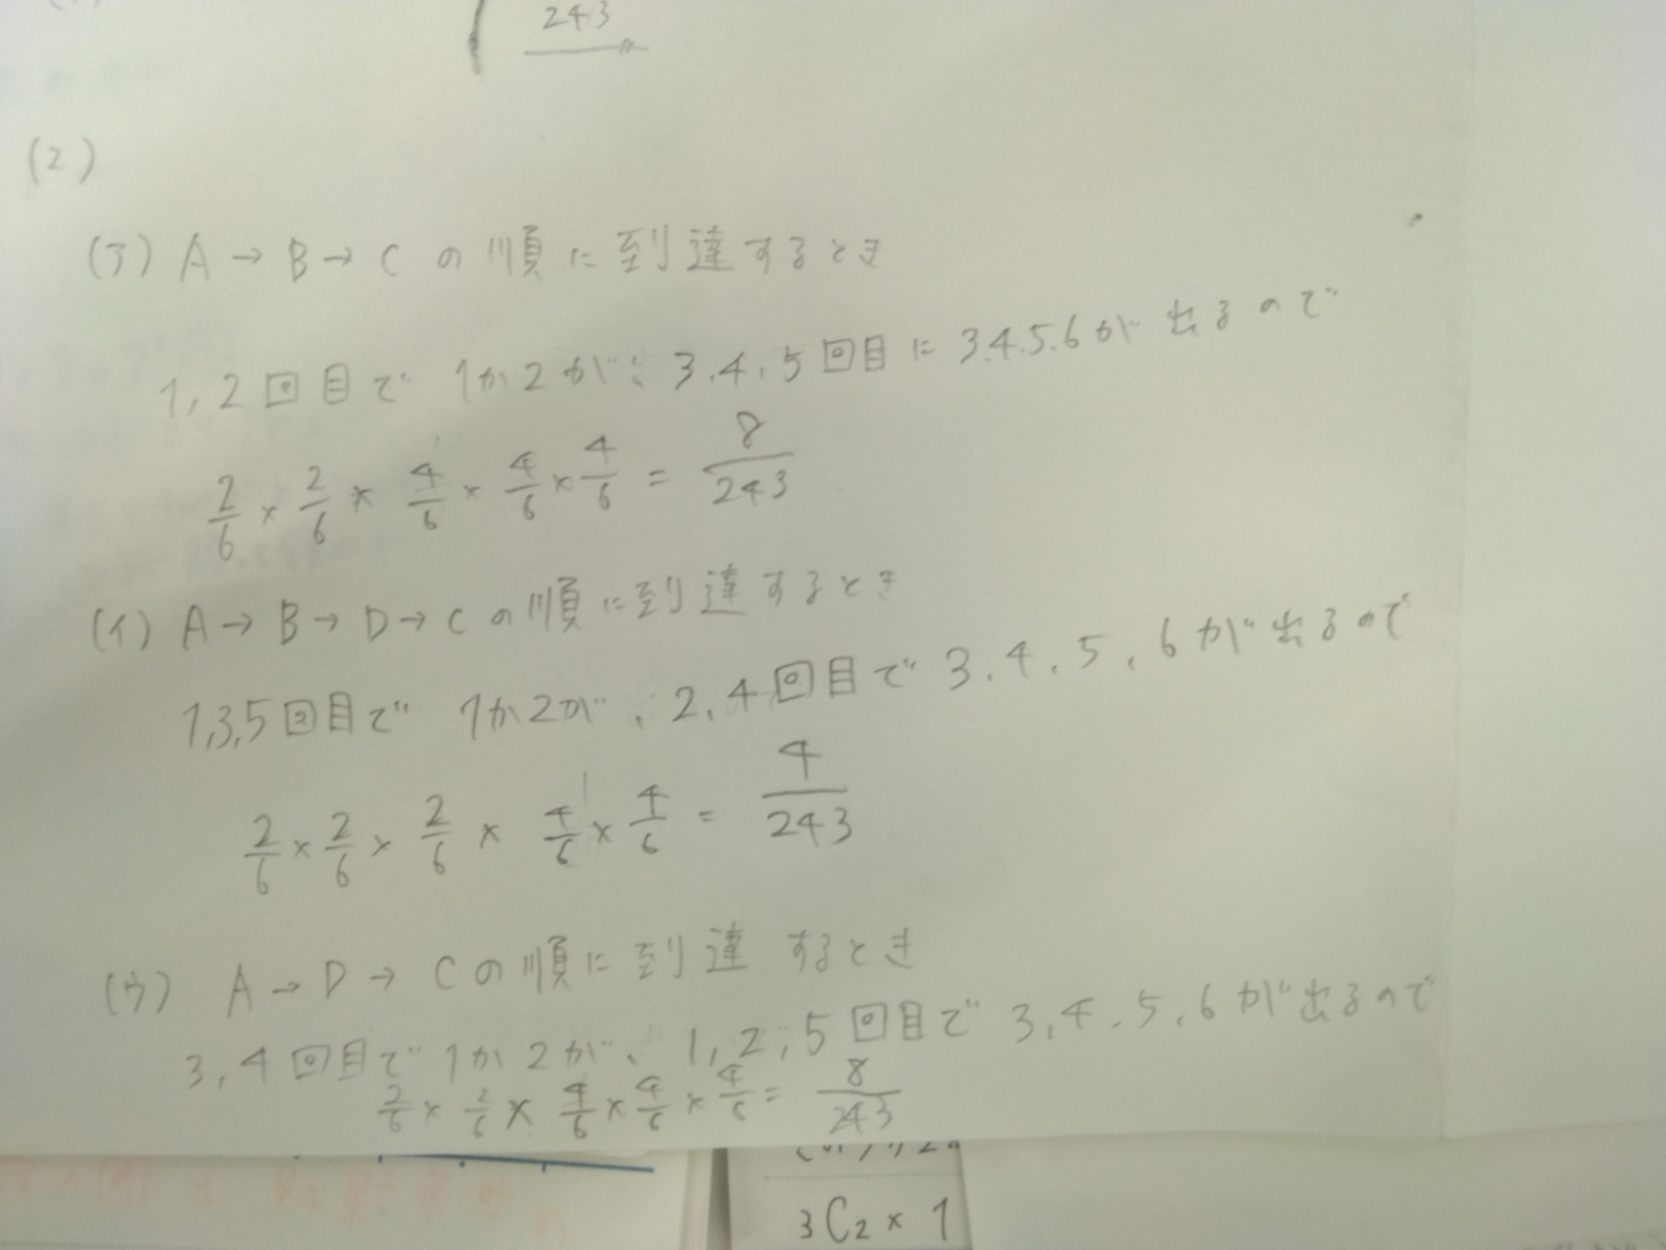 243
(2)
(ア) A → B → C の順に到達するとき
1,2回目で 1か2が、3.4.5回目に3.4.5.6が出るので
2/6 × 2/6 × 4/6 × 4/6 × 4/6 = 8/243
(イ) A → B → D → C の順に到達するとき
1,3,5回目で 1か2が、2,4回目で3.4.5.6が出るので
2/6 × 2/6 × 2/6 × 4/6 × 4/6 = 4/243
(ウ) A → D → C の順に到達するとき
3,4回目で1か2が、1,2,5回目で3,4.5.6が出るので
2/6 × 2/6 × 4/6 × 4/6 × 4/6 = 8/243
3C2 × 1